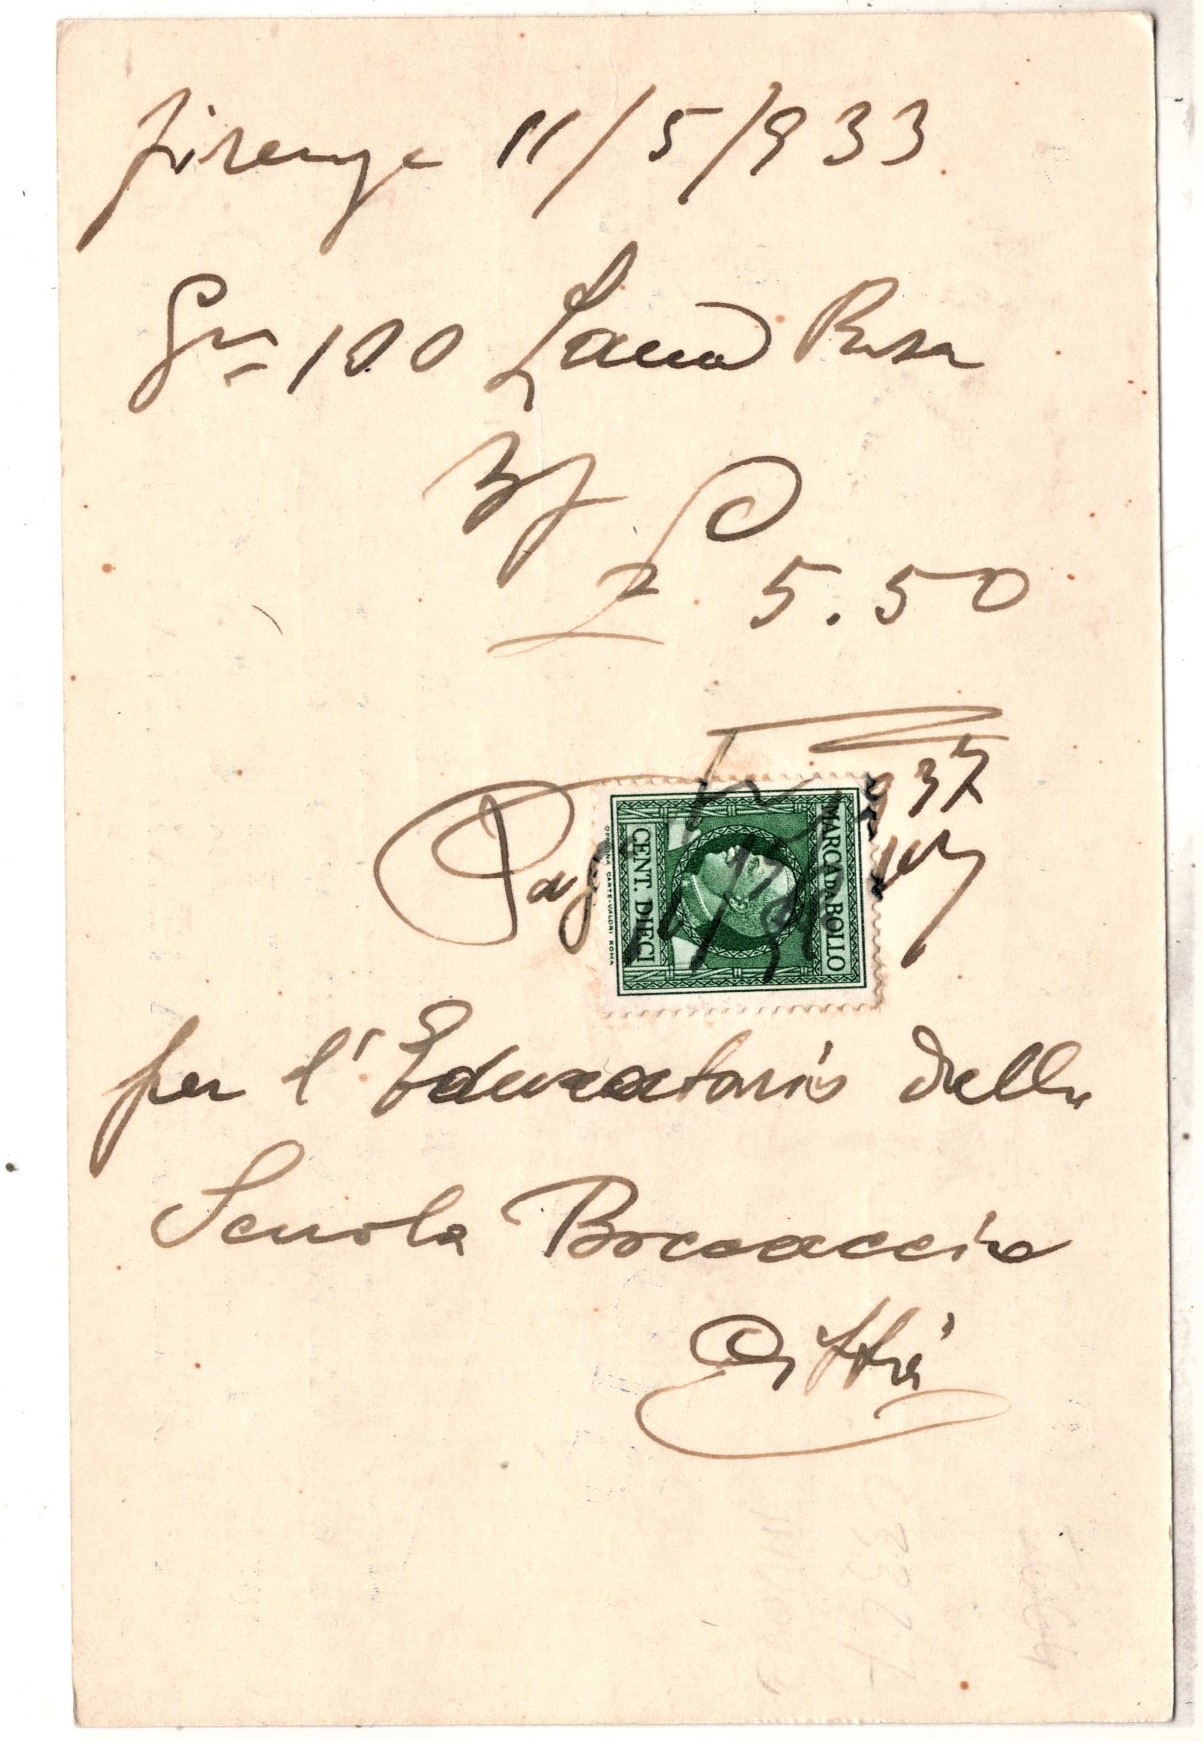 Firenze 11/5/933
Gr 100 Lana Rosa
£ 5.50
MARCA DA BOLLO
CENT. DIECI
OFFICINA CARTE-VALORI ROMA
per l'Educatorio della
Scuola Boccaccio
Città